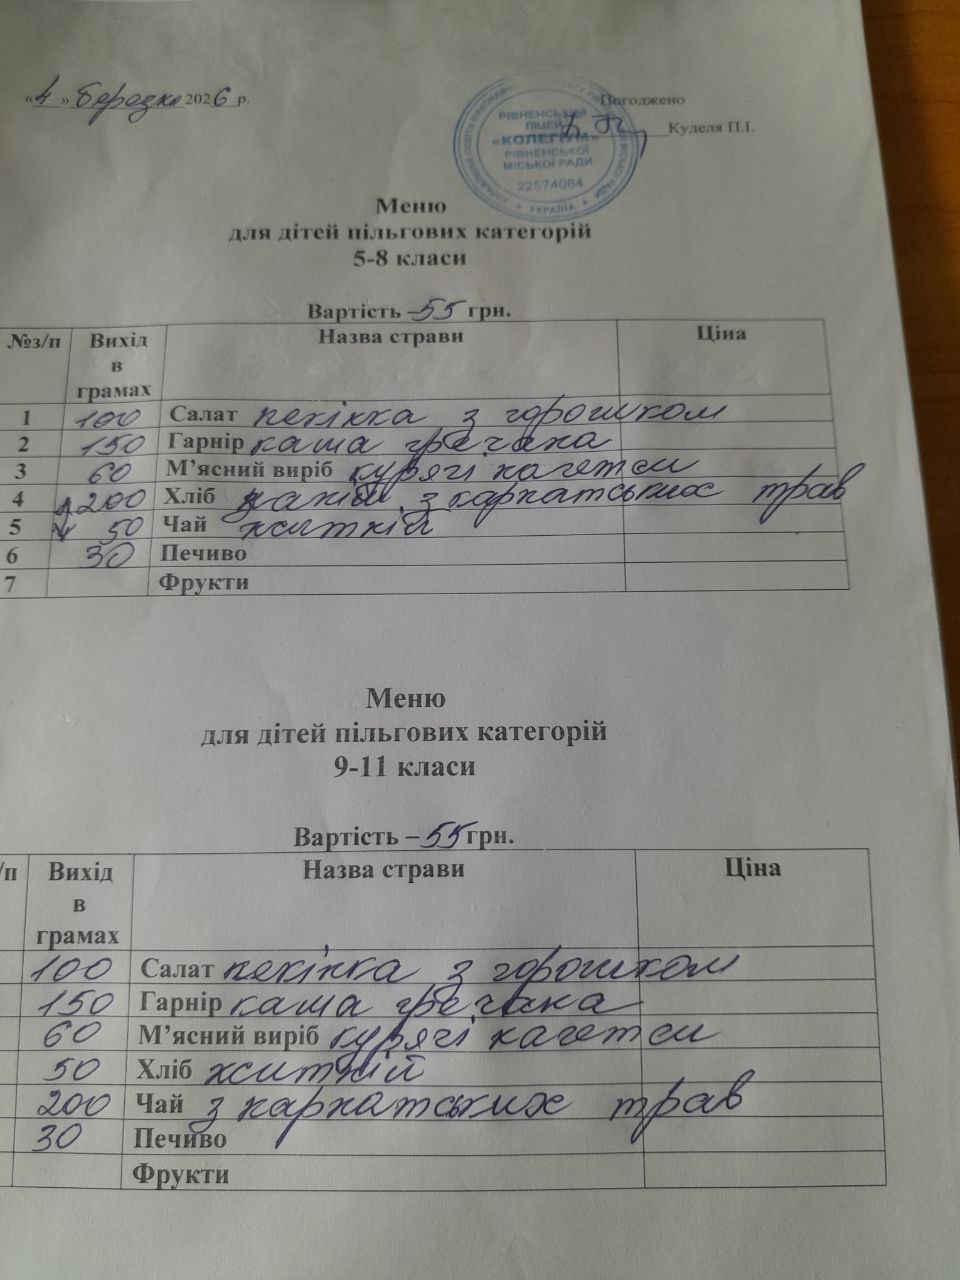 «4» березня 2026 р.
Погоджено
Куделя П.І.
РІВНЕНСЬКИЙ
ЛІЦЕЙ
«КОЛЕГІУМ»
РІВНЕНСЬКОЇ
МІСЬКОЇ РАДИ
22574084
УКРАЇНА
Меню
для дітей пільгових категорій
5-8 класи
Вартість – 55 грн.
№з/п Вихід в грамах Назва страви Ціна
1 100 Салат пекінка з горошком
2 150 Гарнір каша гречана
3 60 М’ясний виріб курячі нагетси
4 200 Хліб з карпатських трав
5 50 Чай житній
6 30 Печиво
7 Фрукти
Меню
для дітей пільгових категорій
9-11 класи
Вартість – 55 грн.
/п Вихід в грамах Назва страви Ціна
100 Салат пекінка з горошком
150 Гарнір каша гречана
60 М’ясний виріб курячі нагетси
50 Хліб житній
200 Чай з карпатських трав
30 Печиво
Фрукти